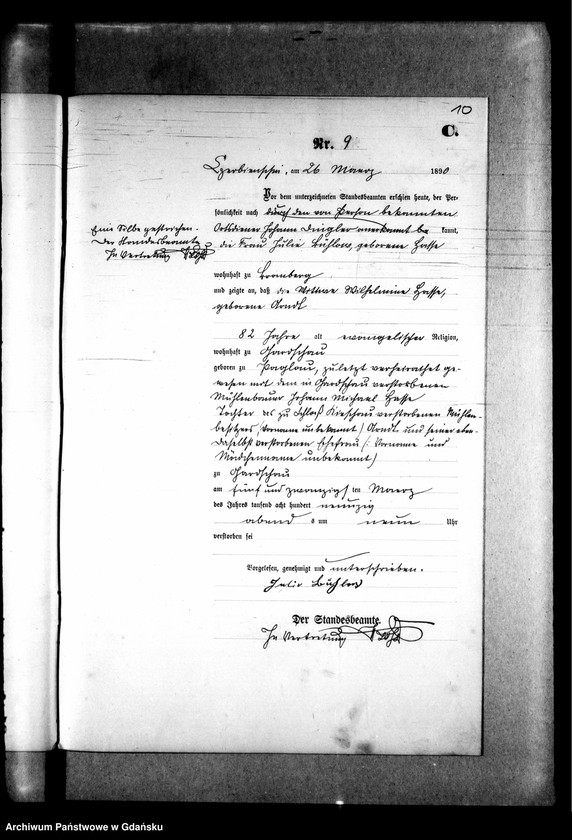 10
C.
Nr. 9
Czerbienschin, am 26 Maerz 1890
Vor dem unterzeichneten Standesbeamten erschien heute, der Per-
sönlichkeit nach durch den von Person bekannten
Ortsdiener Johann anerkannt be kannt,
die Frau Julie Buhlow, geborene Hasse
Eine Silbe gestrichen.
Der Standesbeamte
In Vertretung
wohnhaft zu Bromberg
und zeigte an, daß die Wittwe Wilhelmine Hasse,
geborene Arndt
82 Jahre alt evangelischer Religion,
wohnhaft zu Gardschau
geboren zu Paglau, zuletzt verheirathet ge-
wesen mit dem in Gardschau verstorbenen
Mühlenbauer Johann Michael Hasse
Tochter des zu Schloß Kischau verstorbenen Mühlen-
besitzers (Vorname unbekannt) Arndt und seiner eben-
daselbst verstorbenen Ehefrau (: Vorname und
Mädchenname unbekannt)
zu Gardschau
am fünf und zwanzigs ten Maerz
des Jahres tausend acht hundert neunzig
abend s um neun Uhr
verstorben sei
Vorgelesen, genehmigt und unterschrieben.
Julie Buhlow
Der Standesbeamte.
In Vertretung
Archiwum Państwowe w Gdańsku